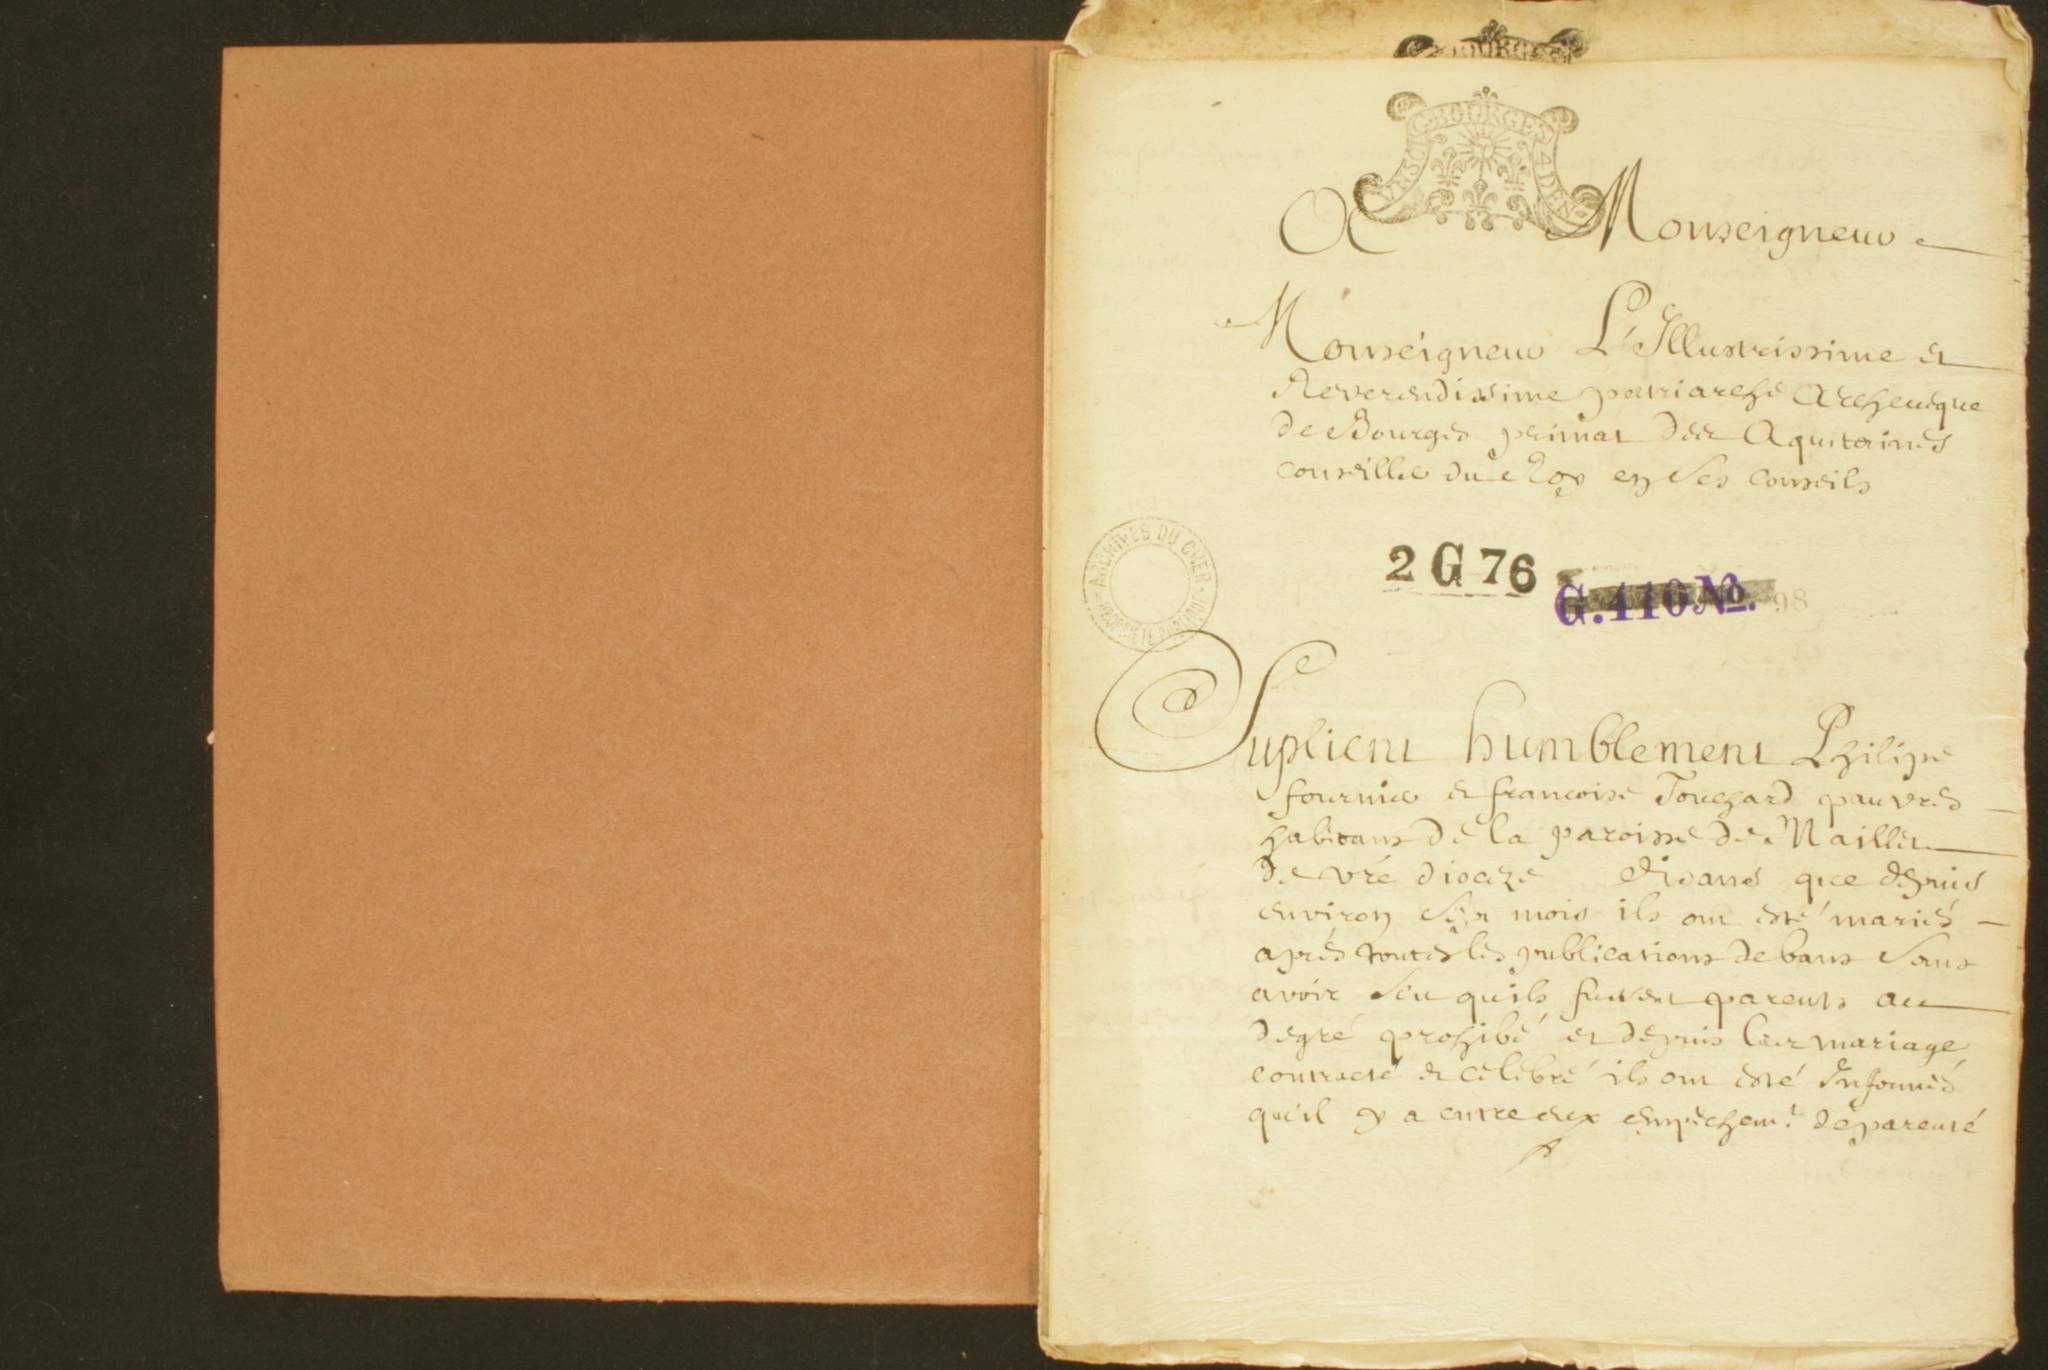 BOURGES
G. BOURGES 4 DEN
A Monseigneur
Monseigneur L'Illustrissime et
Reverendissime patriarche Archeueque
de Bourges primat des Aquitaines
conseiller du Roy en Ses conseils
ARCHIVES DU CHER
PROPRIETE PUBLIQUE
2 G 76
G. 110 No. 98
Suplient humblement Philipe
fournier et francoise Touchard pauvres
habitans de la paroisse de Maillet
de vre dioceze disans que depuis
environ Sept mois ils ont esté mariés
aprés toutes les publications de bans Sans
avoir Sceu quils fussent parents au
degré prohibé et depuis leur mariage
contracté et celebré ils ont esté Informés
qu'il y a entre eux empechemt de parenté